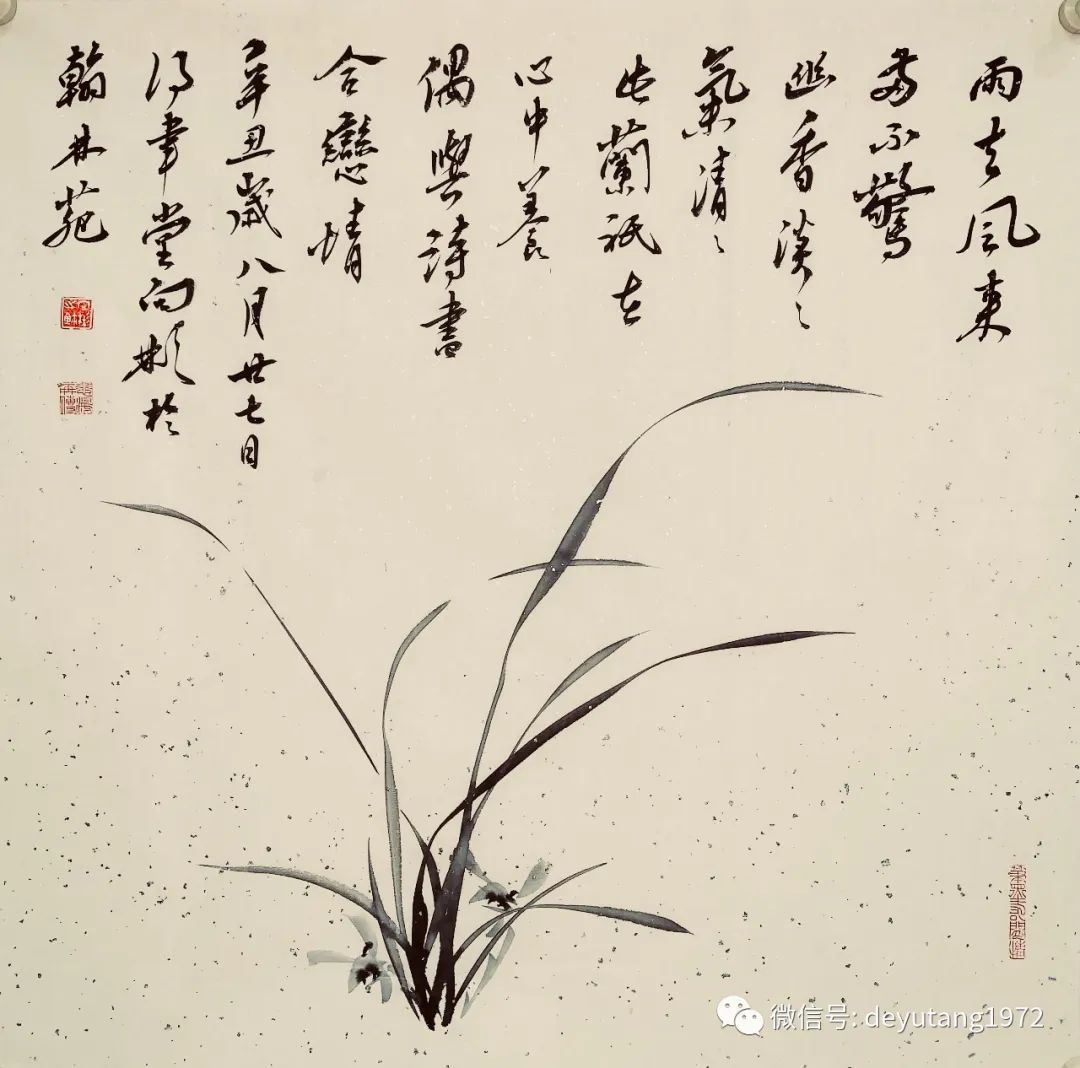 雨去风来
不驚
幽香淡〻
氣清〻
此蘭祇在
心中養
偶與詩書
合戀情
辛丑歲八月廿七日
得聿堂向彬於
翰林苑
微信号: deyutang1972